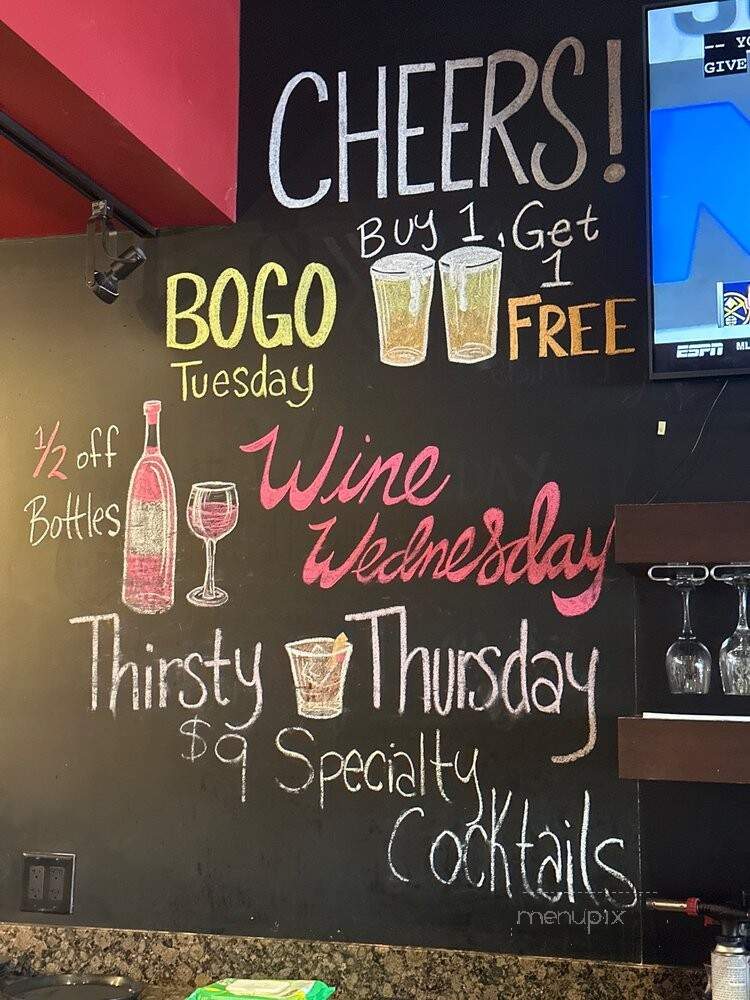 CHEERS!
Buy 1, Get
1
FREE
BOGO
Tuesday
1/2 off
Bottles
Wine
Wednesday
Thirsty Thursday
$9 Specialty
Cocktails
-- YO
GIVE
ESPN
menupix